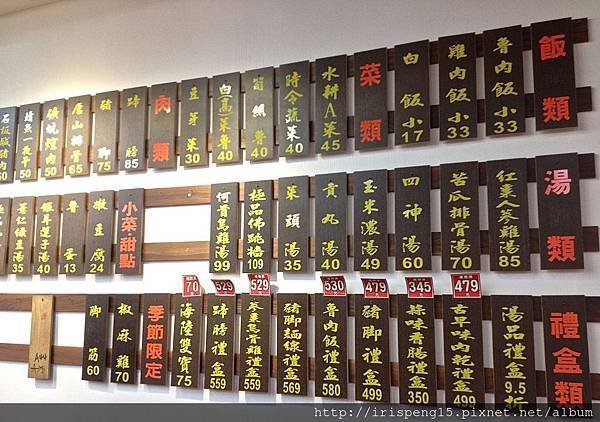 飯類
魯肉飯小33
雞肉飯小33
白飯小17
菜類
水耕A菜45
時令蔬菜40
筍絲魯40
白(高)菜魯40
豆芽菜30
肉類
蹄膀85
豬腳75
唐山排骨65
湯類
紅棗人蔘雞湯85
苦瓜排骨湯70
四神湯60
玉米濃湯49
貢丸湯40
菜頭湯35
極品佛跳牆109
何首烏雞湯99
小菜甜點
嫩豆腐24
魯蛋13
銀耳蓮子湯40
薏仁綠豆湯35
479
345
479
530
529
529
70
禮盒類
湯品禮盒9.5折
古早味肉乾禮盒499
蒜味香腸禮盒350
豬腳禮盒499
魯肉飯禮盒580
豬腳麵線禮盒569
559
蹄膀禮盒559
海陸雙寶75
季節限定
椒麻雞70
腳筋60
http://irispeng15.pixnet.net/album